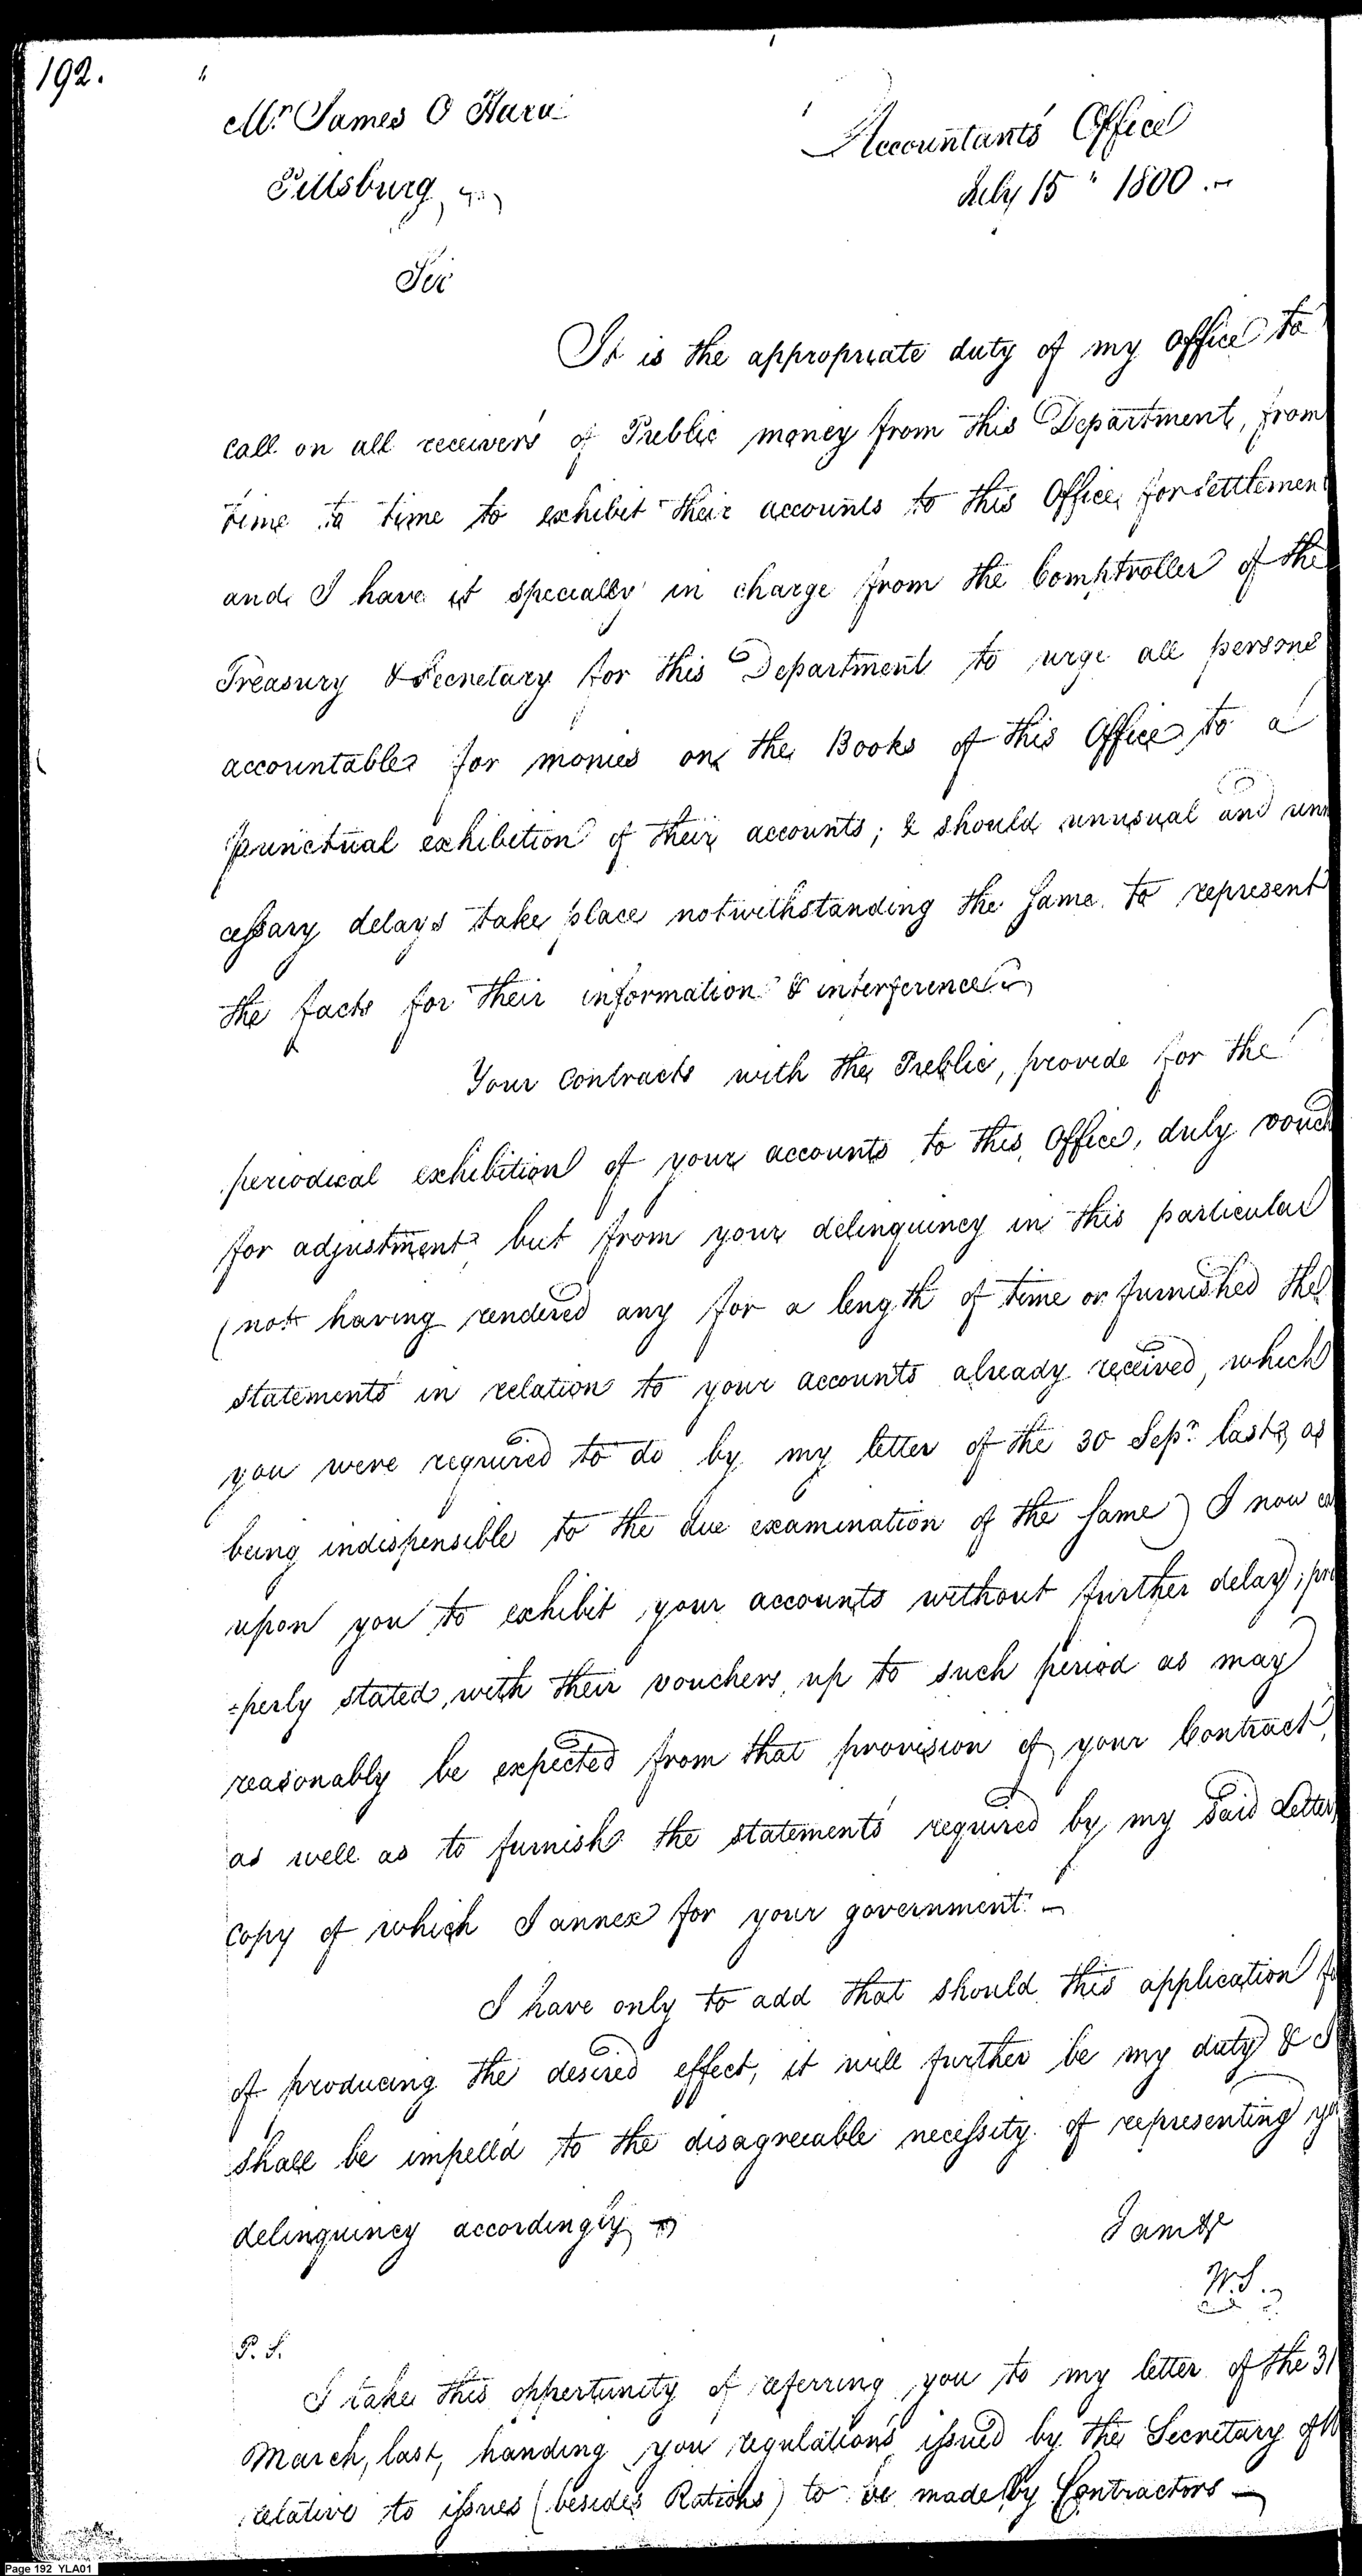 192.
Mr. James O Hara
Accountants Office
Pittsburg
July 15" 1800.
Sir
It is the appropriate duty of my office to
call on all receivers of Public money from this Department, from
time to time to exhibit their accounts to this Office for settlement
and I have it specially in charge from the Comptroller of the
Treasury & Secretary for this Department to urge all persons
accountable for monies on the Books of this Office to a
punctual exhibition of their accounts; & should unusual and unn
cessary delays take place notwithstanding the same to represent
the facts for their information & interference
Your Contracts with the Public, provide for the
periodical exhibition of your accounts to this Office, duly vouch
for adjustment, but from your delinquincy in this particular
(not having rendered any for a length of time or furnished the
statements in relation to your accounts already received, which
you were required to do by my letter of the 30 Sepr. last, as
being indispensible to the due examination of the same) I now ca
upon you to exhibit your accounts without further delay, pro
=perly stated, with their vouchers, up to such period as may
reasonably be expected from that provision of your Contract,
as well as to furnish the statements required by my said Letter,
Copy of which I annex for your government. -
I have only to add that should this application fa
of producing the desired effect, it will further be my duty & I
shall be impell'd to the disagreeable necessity of representing yo
delinquincy accordingly
I am &c
W.S.
P. S.
I take this oppertunity of referring you to my letter of the 31
March, last, handing you regulations issued by the Secretary of W
relative to issues (besides Rations) to be made by Contractors -
Page 192 YLA01